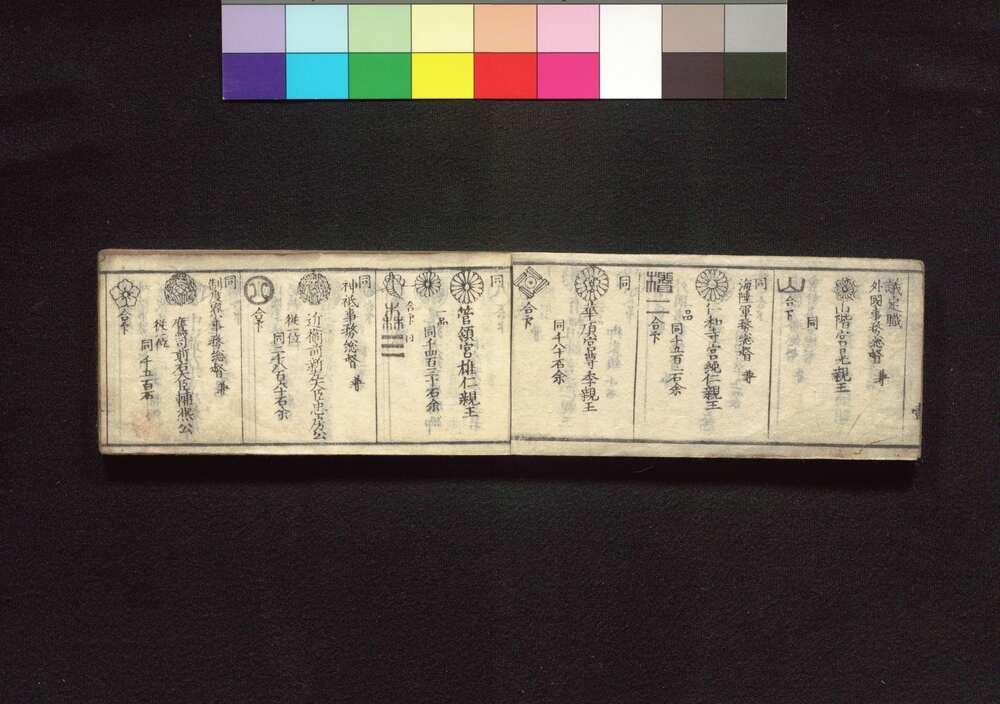 議定職
外國事務総督 兼
山階宮晃親王
同
合下
同
海陸軍務総督 兼
仁和寺宮純仁親王
二品
同千五百二石余
合下
同
華頂宮尊季親王
同八十石余
合下
同
菅領宮雄仁親王
一品
同千四百三十石余
合下
同
神祇事務総督 兼
近衛前前左大臣忠房公
従一位
同二千八百六十石余
合下
同
制度寮事務総督 兼
鷹司前右大臣輔熈公
従一位
同千五百石
合下